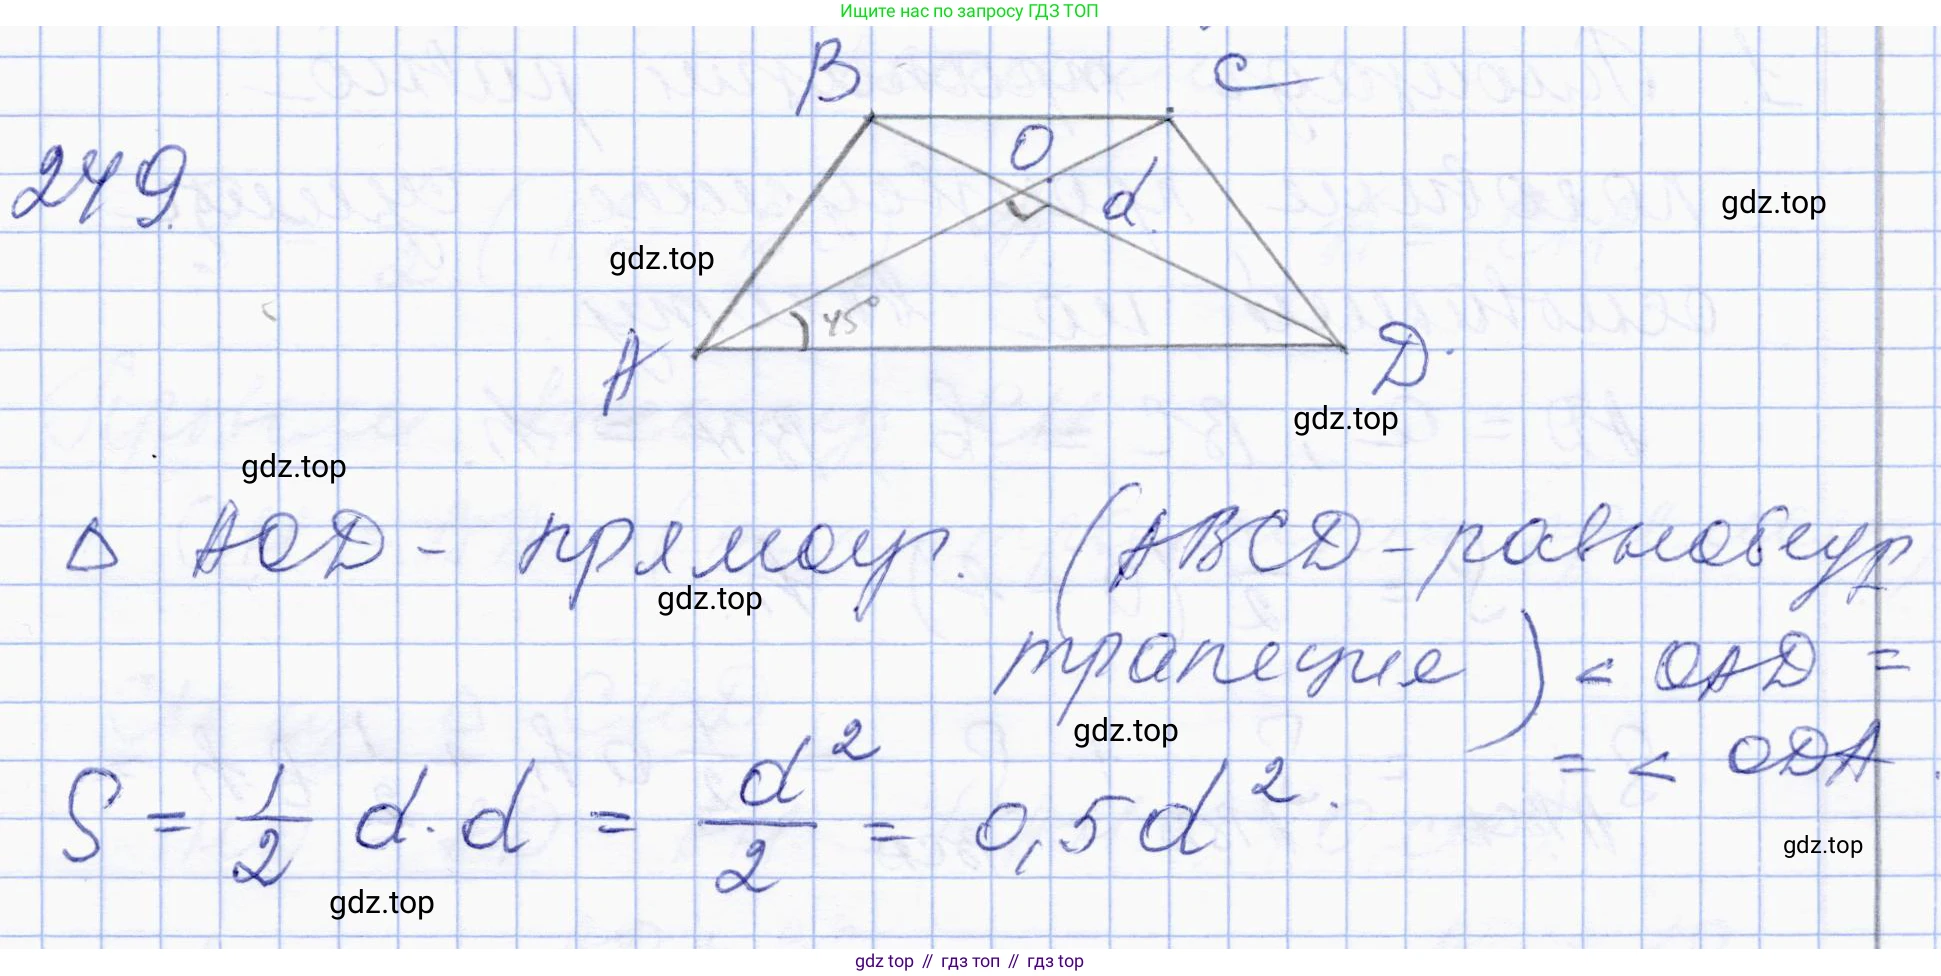 Ищите нас по запросу ГДЗ ТОП
B C
249.
O
d.
gdz.top
gdz.top
45°
A D.
gdz.top
gdz.top
Δ AOD - прямоуг. (ABCD - равнобедр
gdz.top
трапеция) < OAD =
gdz.top
= < ODA.
S = 1/2 d · d = d²/2 = 0,5d².
gdz.top
gdz.top
gdz top // гдз топ // гдз top